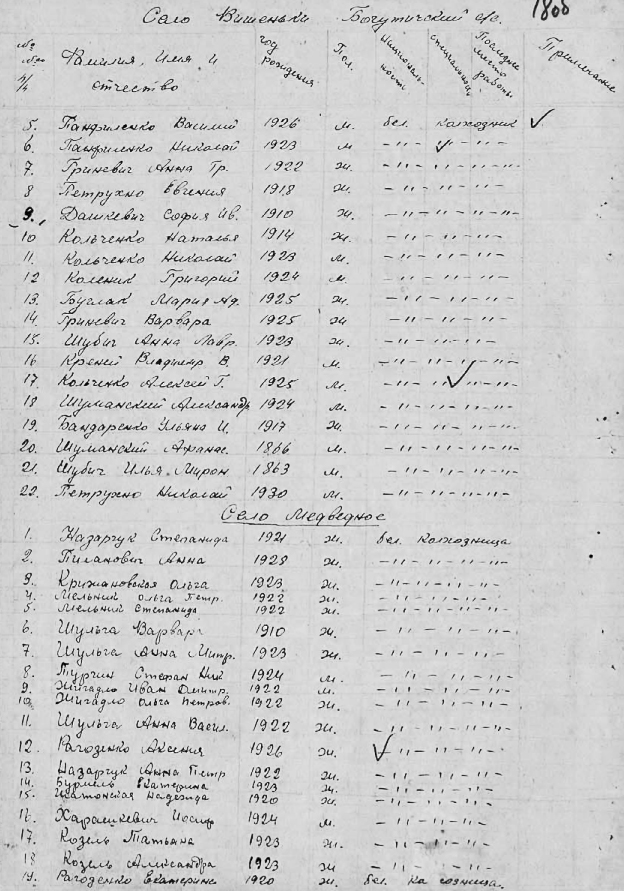 Село Вишеньки Богутичский с/с. 1808
№№ п/п Фамилия, Имя и отчество год рождения Пол. Националь-ность специальность Последнее место работы Примечание
5. Панфиленко Василий 1926 м. бел. колхозник ✓
6. Панфиленко Николай 1923 м -"-"-"-"-
7. Гриневич Анна Гр. 1922 ж. -"-"-"-"-
8 Петрухно Евгения 1918 ж. -"-"-"-"-
9. Дашкевич София Ив. 1910 ж. -"-"-"-"-
10 Кольченко Наталья 1914 ж. -"-"-"-"-
11. Кольченко Николай 1923 м. -"-"-"-"-
12 Коленик Григорий 1924 м. -"-"-"-"-
13. Буслак Мария Ад. 1925 ж. -"-"-"-"-
14. Гриневич Варвара 1925 ж -"-"-"-"-
15. Шубич Анна Лавр. 1923 ж. -"-"-"-
16 Владимир В. 1921 м. -"-"-"-"-
17. Кольченко Алексей Г. 1925 м. -"-"-"-"-
18 Шуманский Александр 1924 м. -"-"-"-"-
19. Бандаренко Ульяна И. 1917 ж. -"-"-"-"-
20. Шуманский Афанас. 1866 м. -"-"-"-"-
21. Шубич Илья Мирон. 1863 м. -"-"-"-"-
22. Петрухно Николай 1930 м. -"-"-"-"-
Село Медведное
1. Назарчук Степанида 1921 ж. бел. колхозница
2. Пиланович Анна 1928 ж. -"-"-"-"-
3. Крижановская Ольга 1923 ж. -"-"-"-"-
4. Мельник Ольга Петр. 1922 ж. -"-"-"-"-
5. Мельник Степанида 1922 ж. -"-"-"-"-
6. Шульга Варвара 1910 ж. -"-"-"-"-
7. Шульга Анна Митр. 1923 ж. -"-"-"-"-
8. Турчин Степан Ник 1924 м. -"-"-"-"-
9. Жигадло Иван Дмитр. 1922 м. -"-"-"-"-
10. Жигадло Ольга Петров. 1922 ж. -"-"-"-"-
11. Шульга Анна Васил. 1922 ж. -"-"-"-"-
12. Рагозенко Аксения 1926 ж. ✓-"-"-"-"-
13. Назарчук Анна Петр 1922 ж. -"-"-"-"-
14. Екатерина 1923 ж -"-"-"-"-
15. Надежда 1920 ж. -"-"-"-"-
16. Харашкевич Иосиф 1924 м. -"-"-"-"-
17. Козель Татьяна 1923 ж. -"-"-"-"-
18 Козель Александра 1923 ж -"-"-"-"-
19. Рагозенко Екатерина 1920 ж. бел.